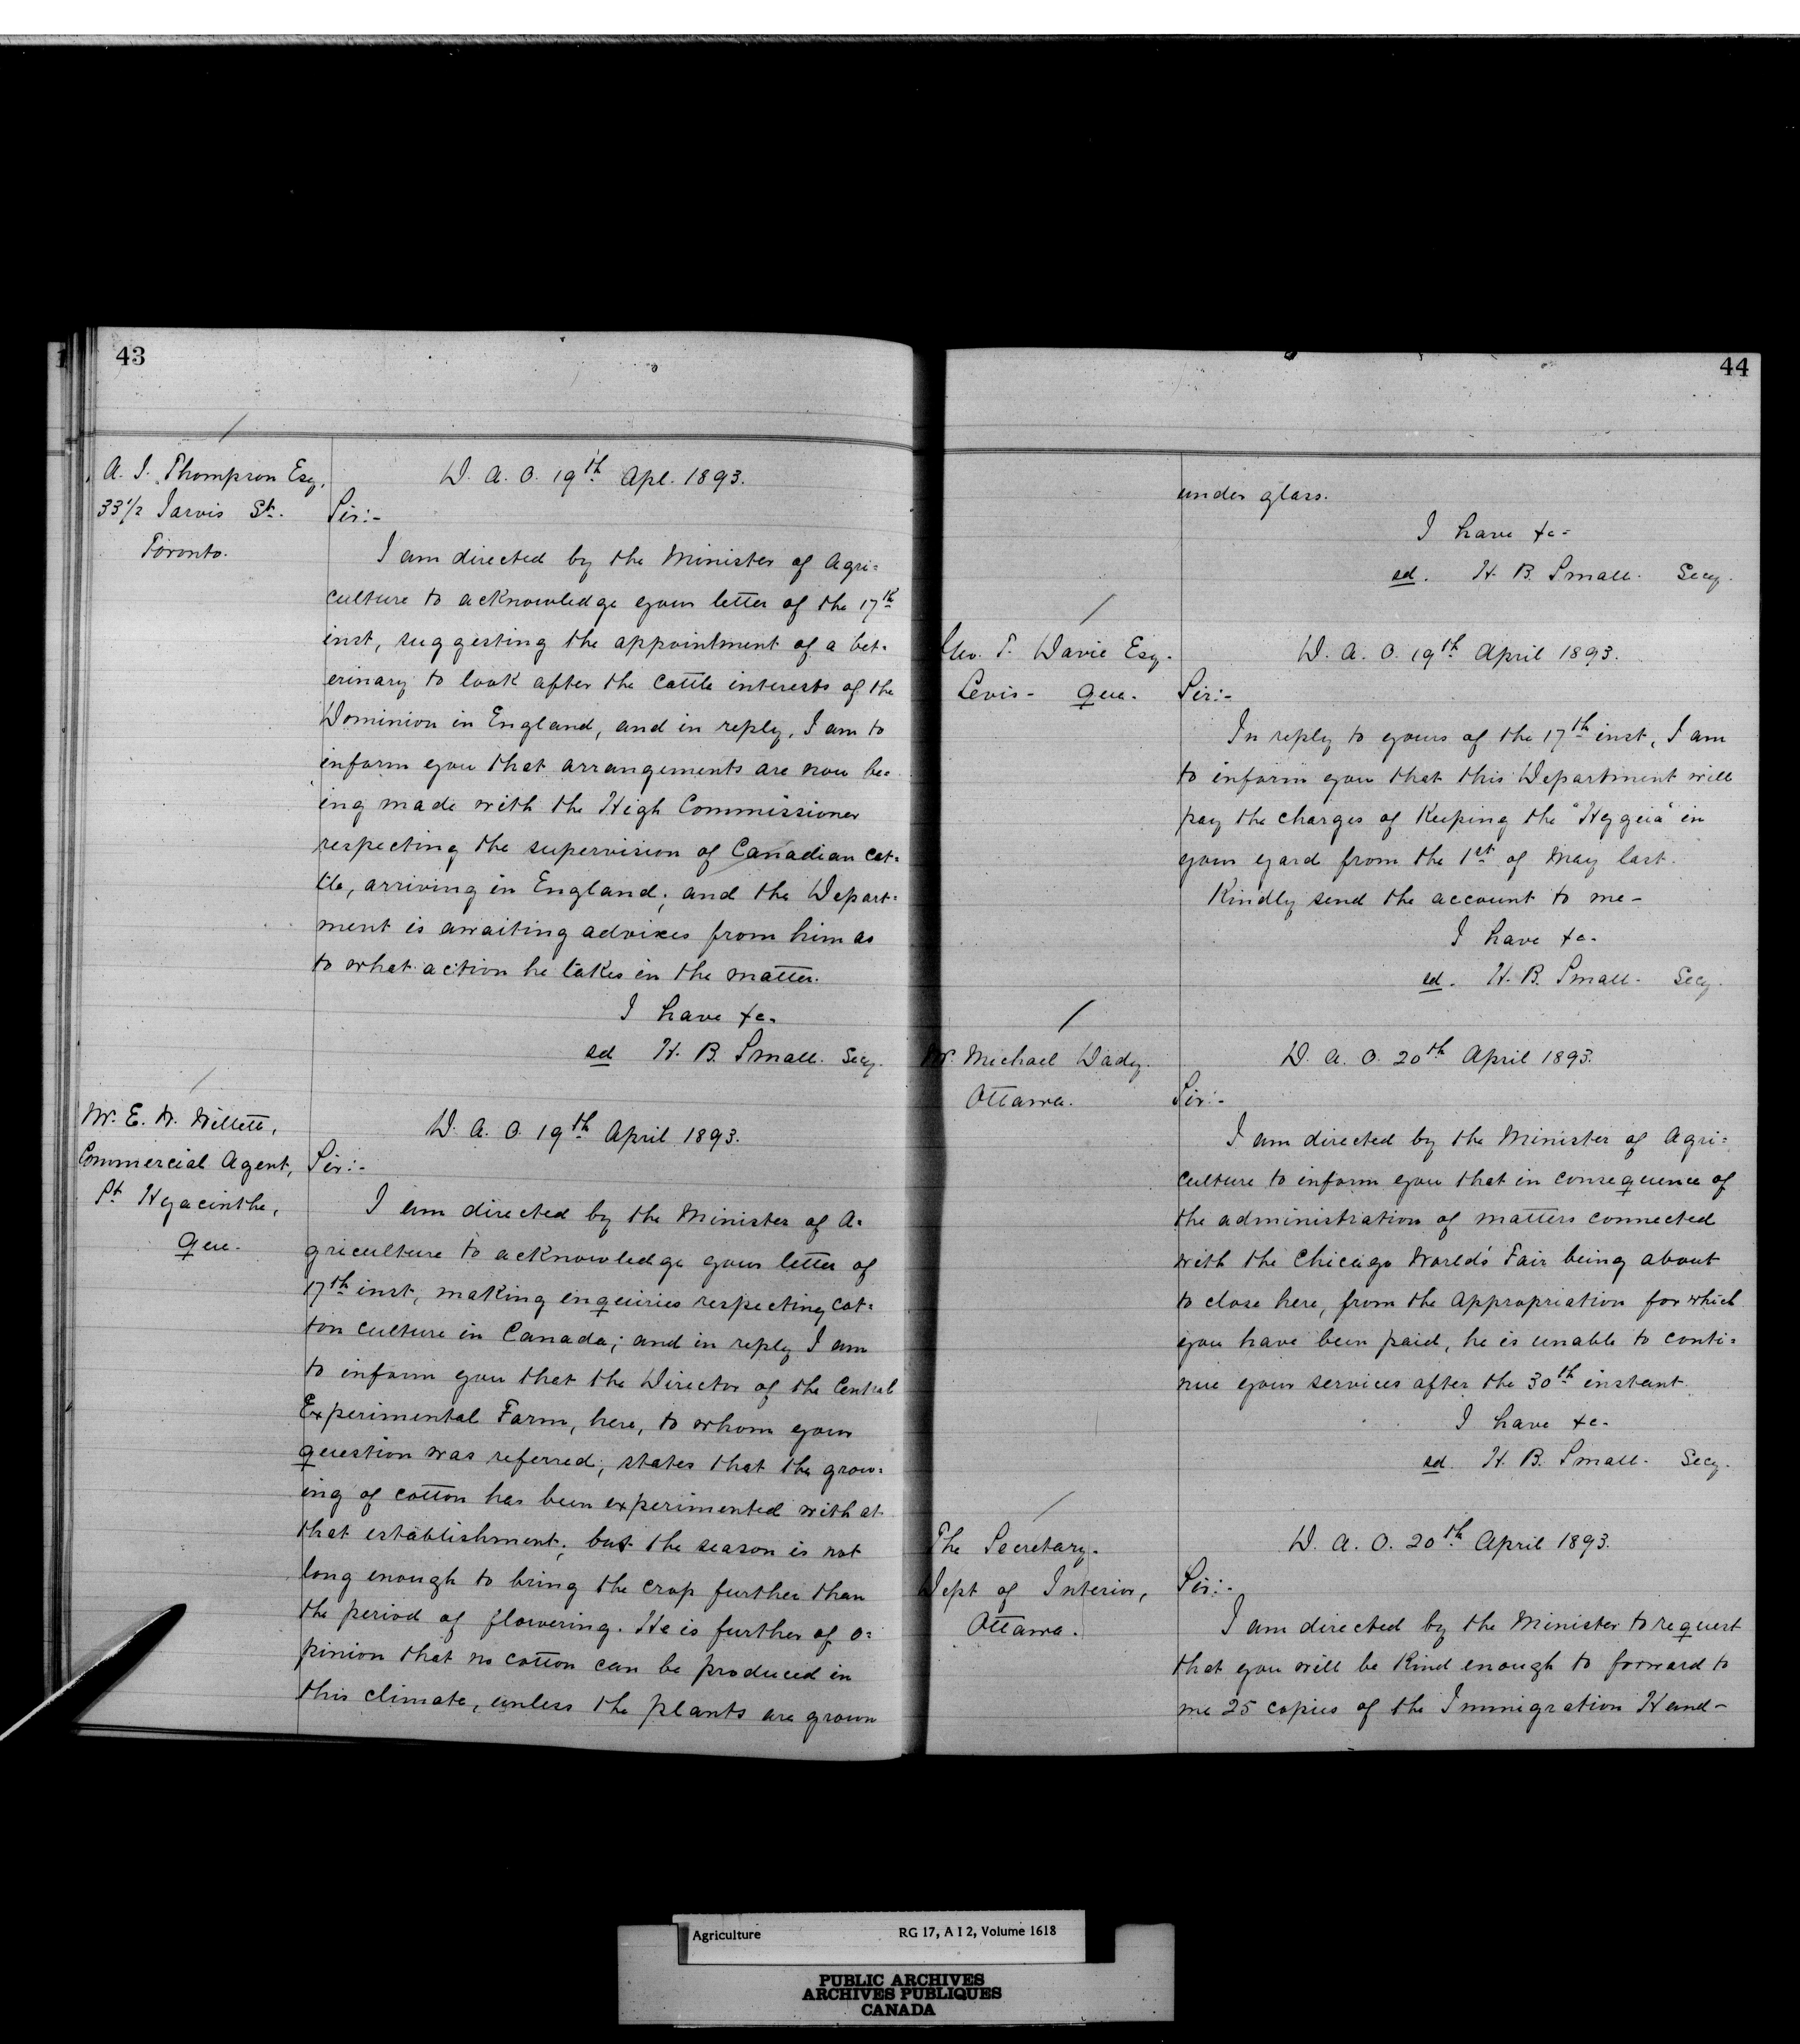 43
A. J. Thompson Esq.
33 1/2 Jarvis St.
Toronto.
D. A. O. 19th Apl. 1893.
Sir:-
I am directed by the Minister of Agri=
culture to acknowledge your letter of the 17th
inst, suggesting the appointment of a vet=
erinary to look after the cattle interests of the
Dominion in England, and in reply, I am to
inform you that arrangements are now be=
ing made with the High Commissioner
respecting the supervision of Canadian cat=
tle, arriving in England; and the Depart=
ment is awaiting advices from him as
to what action he takes in the matter.
I have &c.
sd H. B. Small. Secy.
Mr. E. W. Willett,
Commercial Agent,
St Hyacinthe,
Que.
D. A. O. 19th April 1893.
Sir:-
I am directed by the Minister of A=
griculture to acknowledge your letter of
17th inst, making enquiries respecting cot=
ton culture in Canada; and in reply I am
to inform you that the Director of the Central
Experimental Farm, here, to whom your
question was referred, states that the grow=
ing of cotton has been experimented with at
that establishment; but the season is not
long enough to bring the crop further than
the period of flowering. He is further of o=
pinion that no cotton can be produced in
this climate, unless the plants are grown
44
under glass.
I have &c-
sd. H. B. Small. Secy.
Geo. T. Davie Esq.
Levis - Que.
D. A. O. 19th April 1893.
Sir:-
In reply to yours of the 17th inst, I am
to inform you that this Department will
pay the charges of keeping the "Hygeia" in
your yard from the 1st of May last.
Kindly send the account to me-
I have &c.
sd. H. B. Small. Secy.
Mr. Michael Dady.
Ottawa.
D. A. O. 20th April 1893.
Sir:-
I am directed by the Minister of Agri=
culture to inform you that in consequence of
the administration of matters connected
with the Chicago World's Fair being about
to close here, from the appropriation for which
you have been paid, he is unable to conti=
nue your services after the 30th instant.
I have &c.
sd. H. B. Small. Secy.
The Secretary.
Dept of Interior,
Ottawa.
D. A. O. 20th April 1893.
Sir:-
I am directed by the Minister to request
that you will be kind enough to forward to
me 25 copies of the Immigration Hand-
Agriculture RG 17, A I 2, Volume 1618
PUBLIC ARCHIVES
ARCHIVES PUBLIQUES
CANADA